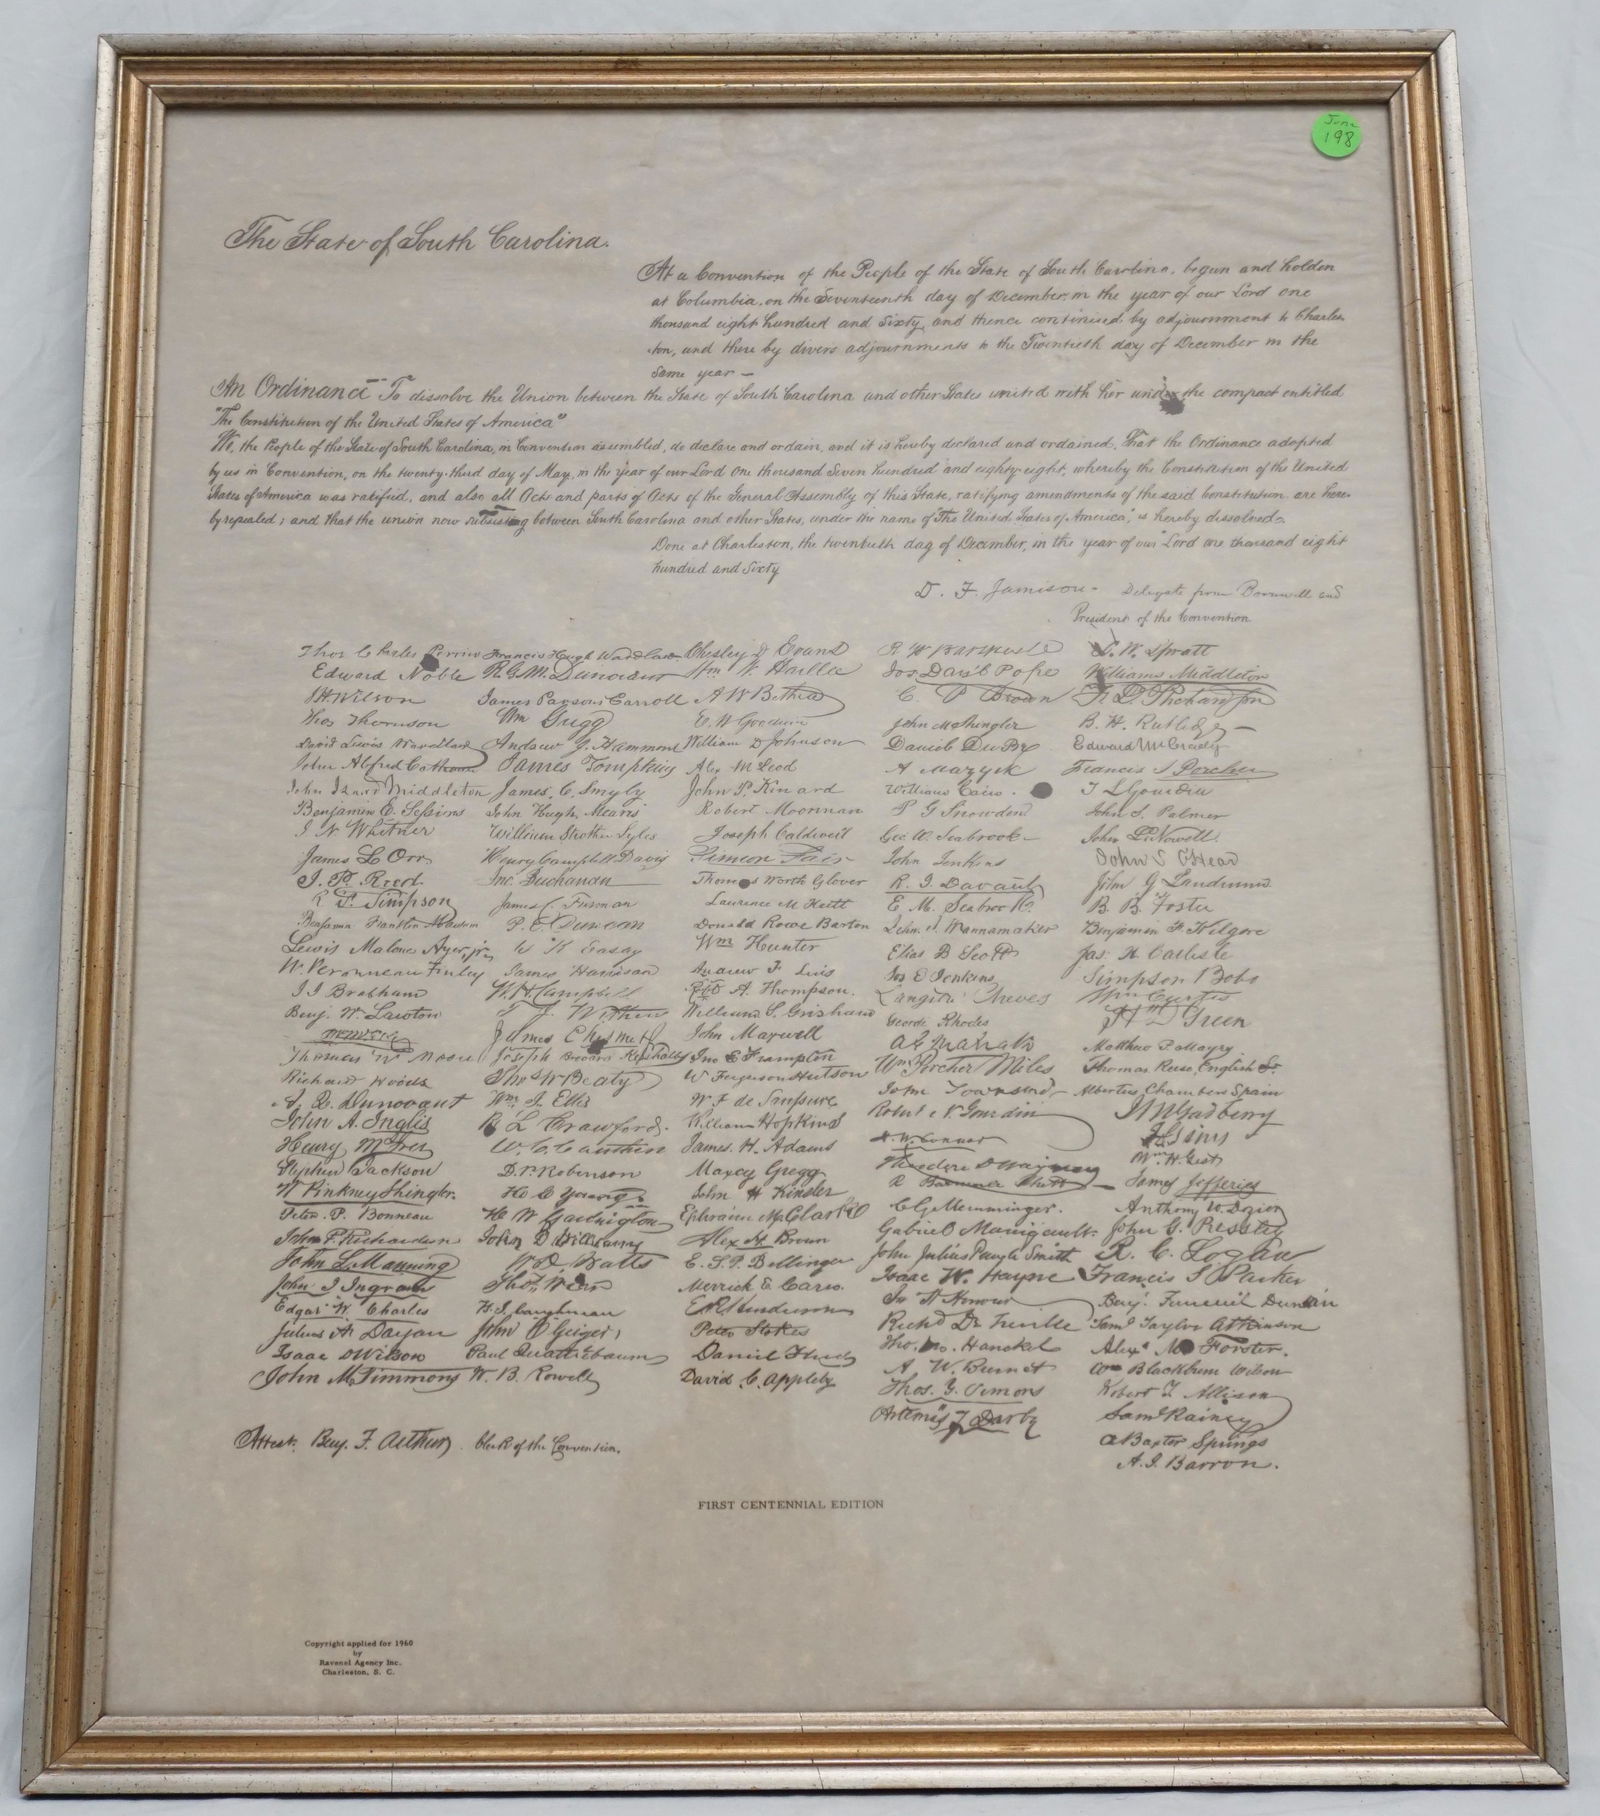 June
198
The State of South Carolina.
At a Convention of the People of the State of South Carolina, begun and holden
at Columbia, on the Seventeenth day of December, in the year of our Lord one
thousand eight hundred and Sixty, and thence continued by adjournment to Charles-
ton, and there by divers adjournments to the Twentieth day of December in the
same year —
An Ordinance To dissolve the Union between the State of South Carolina and other States united with her under the compact entitled
"The Constitution of the United States of America"
We, the People of the State of South Carolina, in Convention assembled, do declare and ordain, and it is hereby declared and ordained, That the Ordinance adopted
by us in Convention, on the twenty-third day of May, in the year of our Lord one thousand Seven hundred and eighty-eight, whereby the Constitution of the United
States of America was ratified, and also all Acts and parts of Acts of the General Assembly of this State, ratifying amendments of the said Constitution, are here-
by repealed; and that the union now subsisting between South Carolina and other States, under the name of "The United States of America," is hereby dissolved.
Done at Charleston, the twentieth day of December, in the year of our Lord one thousand eight
hundred and Sixty
D. F. Jamison - Delegate from Barnwell and
President of the Convention
Thos Charles Perrin
Edward Noble
J. H. Wilson
Thos Thomson
David Lewis Wardlaw
John Alfred Calhoun
John Izard Middleton
Benjamin E. Sessions
J. N. Whitner
James L Orr
J. P. Reed.
R. F. Simpson
Benjamin Franklin Mauldin
Lewis Malone Ayer, jr.
W. Peronneau Finley
J. J. Brabham
Benj. W. Lawton
Thomas W. Moore
Richard Woods
A. Q. Dunovant
John A. Inglis
Henry McIver
Stephen Jackson
W. Pinkney Shingler.
Peter. P. Bonneau
John P. Richardson
John L. Manning
John I Ingram
Edgar W. Charles
Julius A. Dargan
Isaac D Wilson
John M. Timmons
Francis Hugh Wardlaw
R. G. M. Dunovant
James Parsons Carroll
Wm Gregg
Andrew J. Hammond
James Tompkins
James. C. Smyly
John Hugh Means
William Strother Lyles
Henry Campbell Davis
Jno. Buchanan
James C. Furman
P. E. Duncan
W K Easley
James Harrison
W. H. Campbell
T. J. Withers
James Chesnut Jr
Joseph Brevard Kershaw
Thos W. Beaty
Wm. J. Ellis
R L Crawford.
W. C. Cauthen
D. P. Robinson
H. C Young
H. W. Garlington
John D. Williams
W. D. Watts
Thos. Wier
H. I. Caughman
John C Geiger,
Paul Quattlebaum
W. B. Rowell
Chesley D Evans
Wm W. Harllee
A W Bethea
E. W Goodwin
William D Johnson
Alex McLeod
John P. Kinard
Robert Moorman
Joseph Caldwell
Simeon Fair
Thomas Worth Glover
Laurence M Keitt
Donald Rowe Barton
Wm Hunter
Andrew F. Lewis
Robt A. Thompson.
William S. Grisham
John Maxwell
Jno E Frampton
W Ferguson Hutson
W. F de Saussure
William Hopkins
James. H. Adams
Maxcy Gregg
John H Kinsler
Ephraim M. Clarke
Alex H. Brown
E. S. P. Bellinger
Merrick E. Carn.
E. R. Henderson
Peter Stokes
Daniel Flud
David C. Appleby
R W Barnwell
Jos Dan'l Pope
C. P. Brown
John M Shingler
Daniel DuPre
A Mazyck
William Cain.
P G Snowden
Geo. W. Seabrook
John Jenkins
R. J. Davant
E. M. Seabrook.
John J. Wannamaker
Elias B Scott
Jos E Jenkins
Langdon Cheves
George Rhodes
A G Magrath
Wm. Porcher Miles
John Townsend
Robert N. Gourdin
H. W. Conner
Theodore D Wagner
R Barnwell Rhett
C. G. Memminger.
Gabriel Manigault.
John Julius Pringle Smith
Isaac W. Hayne
Jn H Honour
Richd De Treville
Tho. M. Hanckel
A. W. Burnet
Thos. Y. Simons
Artemas T Darby
L. W. Spratt
Williams Middleton
F. D. Richardson
B. H. Rutledge
Edward McCrady
Francis J Porcher
T L Gourdin
John S. Palmer
John L. Nowell
John S OHear
John G Landrum
B. B. Foster
Benjamin F. Kilgore
Jas. H. Carlisle
Simpson Bobo
Wm Curtis
H D Green
Matthew P. Mayes
Thomas Reese English Sr.
Albertus Chambers Spain
J. M. Gadberry
J S Sims
Wm. H. Gist
James Jefferies
Anthony W. Dozier
John G. Pressley
R. C. Logan
Francis S Parker
Benj. Faneuil Duncan
Sam'l Taylor Atkinson
Alex. M Forster.
Wm Blackburn Wilson
Robert T. Allison
Sam'l Rainey
A Baxter Springs
A. I. Barron.
Attest. Benj. F. Arthur, Clerk of the Convention.
FIRST CENTENNIAL EDITION
Copyright applied for 1960
by
Ravenel Agency Inc.
Charleston, S. C.